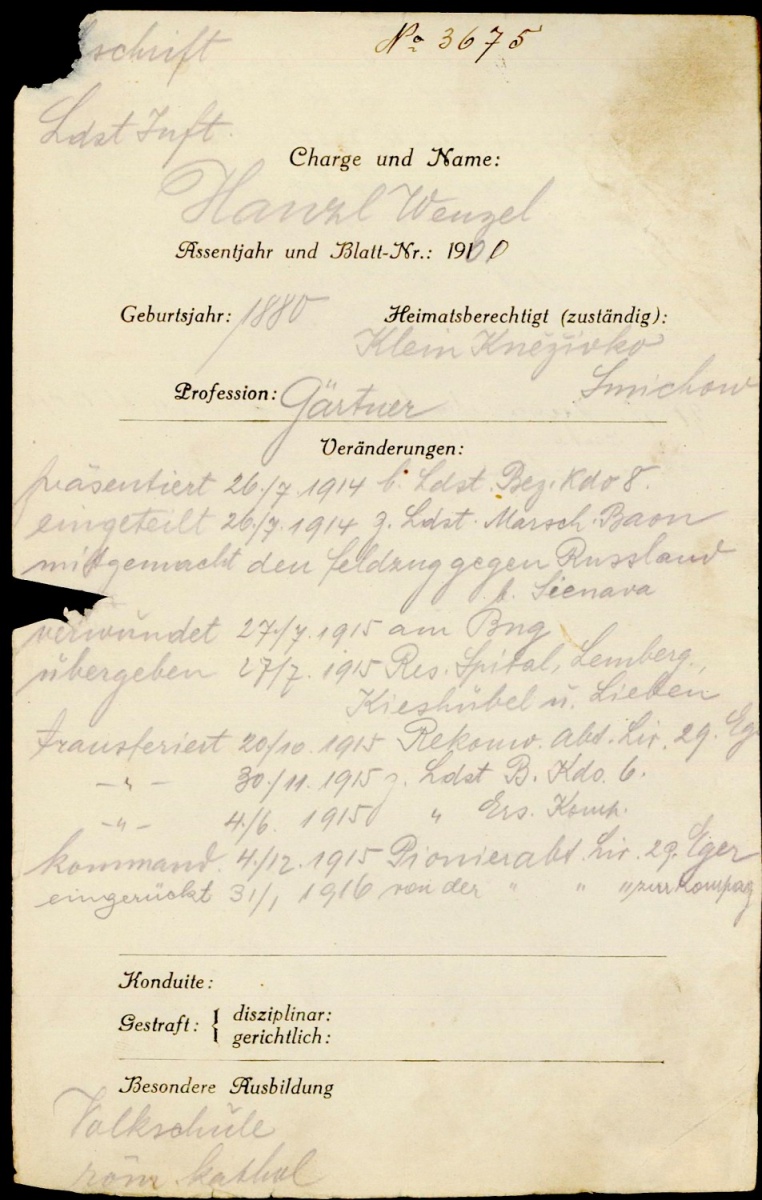 schrift
№ 3675
Ldst Inft.
Charge und Name:
Hanzl Wenzel
Assentjahr und Blatt-Nr.: 191
Geburtsjahr: 1880 Heimatsberechtigt (zuständig):
Klein Kněživko
Smichow
Profession: Gärtner
Veränderungen:
präsentiert 26./7. 1914 b. Ldst. Bez. Kdo 8.
eingeteilt 26./7. 1914 z. Ldst. Marsch. Baon
mitgemacht den Feldzug gegen Russland
b. Sienava
verwundet 27./7. 1915 am Bug
übergeben 27/7. 1915 Res. Spital, Lemberg,
Kieshübel u. Lieben
transferiert 20/10. 1915 Rekonv. Abt. Lir. 29. Eg
-"- 30./11. 1915 z. Ldst B. Kdo. 6.
-"- 4./6. 1915 " Ers. Komp.
kommand. 4./12. 1915 Pionierabt. Lir. 29. Eger
eingerückt 31/1 1916 von der " " " zur Kompag
Konduite:
Gestraft: { disziplinar:
gerichtlich:
Besondere Ausbildung
Volkschule
röm. kathol